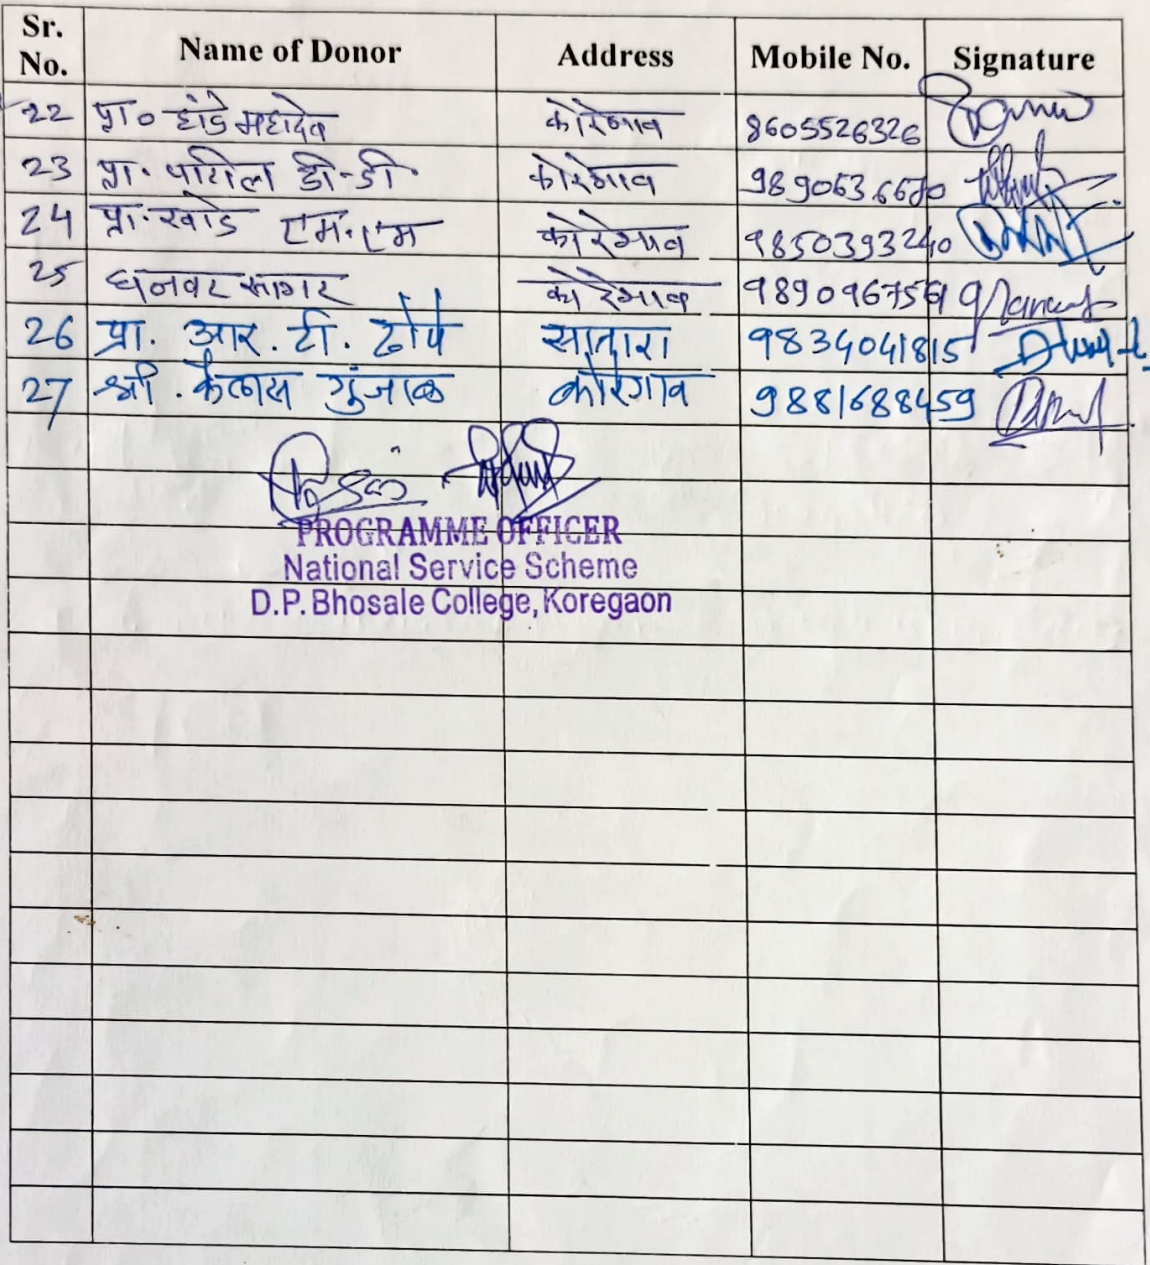 Sr. No. Name of Donor Address Mobile No. Signature
22 प्रा० हांडे महादेव कोरेगाव 8605526326
23 प्रा. पाटील डी-डी. कोरेगाव 9890636670
24 प्रा. खाडे एम.एम कोरेगाव 9850393240
25 धनवट सागर कोरेगाव
26 प्रा. आर. टी. ढोपे सातारा 9834041815
27 श्री. कैलास गुंजाळ कोरेगाव 9881688459
PROGRAMME OFFICER
National Service Scheme
D.P. Bhosale College, Koregaon